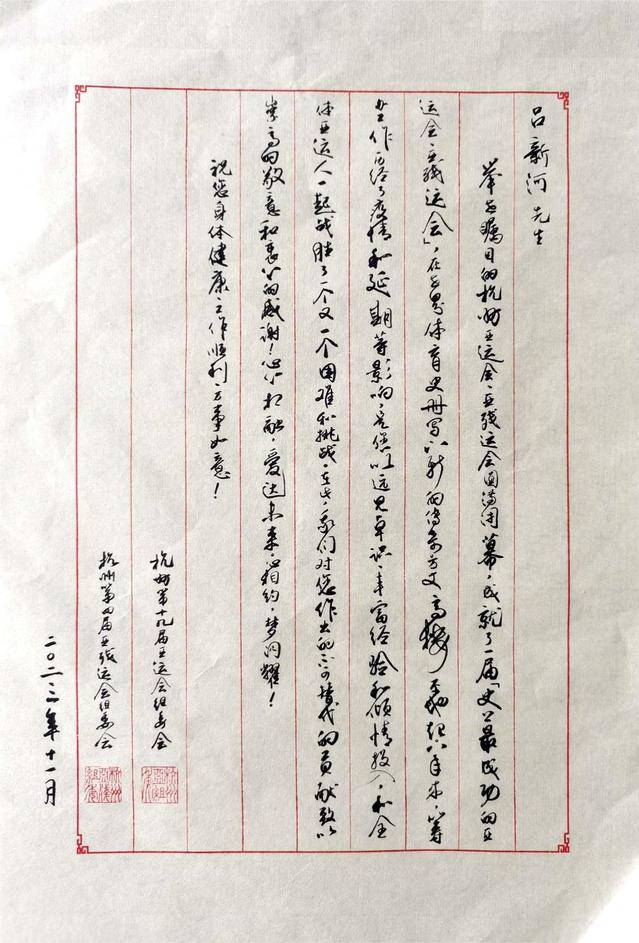 吕新河先生
举世瞩目的杭州亚运会、亚残运会圆满闭幕，成就了一届「史上最成功的亚
运会、亚残运会」，在世界体育史册写下新的传奇
六年来，筹
办工作历经了疫情和延期等影响，是您以远见卓识、丰富经验和倾情投入，和全
体亚运人一起战胜了一个又一个困难和挑战。在此，我们对您作出的不可替代的贡献致以
崇高的敬意和衷心的感谢！心心相融，爱达未来，心相约，梦闪耀！
祝您身体健康工作顺利万事如意！
杭州第十九届亚运会组委会
杭州第四届亚残运会组委会
二〇二三年十一月